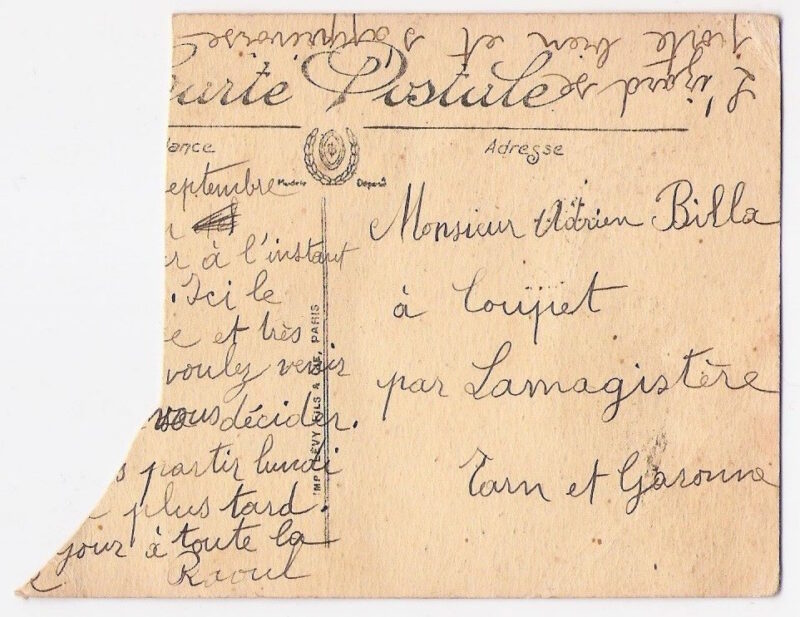 L'izard se
porte bien et s'apprivoise
Carte Postale
dance
Adresse
Modèle Déposé
eptembre
r à l'instant
. Ici le
e et très
voulez venir
vous décider.
s partir lundi
plus tard.
jour à toute la
Raoul
IMP. LÉVY FILS & CIE, PARIS
Monsieur Adrien Billa
à Coupet
par Lamagistère
Tarn et Garonne